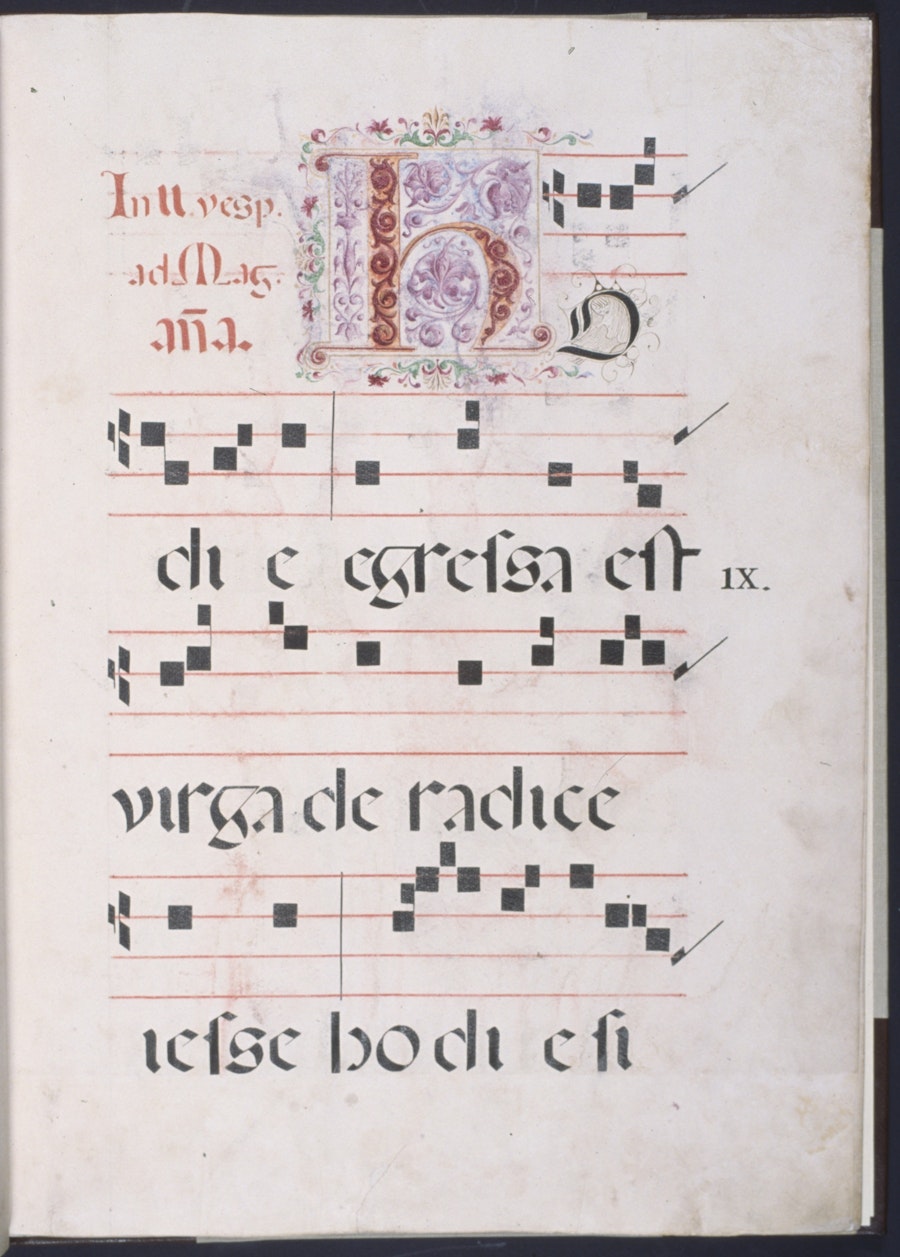 In II vesp.
ad Mag.
an̄a.
HO
di e egreſsa eſt
IX.
virga de radice
ieſse ho di e ſi